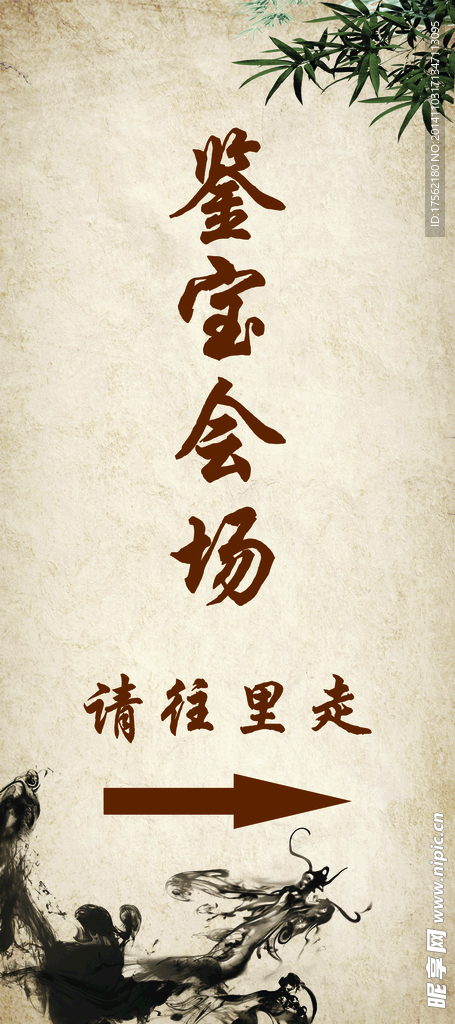 鉴宝会场
请往里走
ID:17562180 NO:20141103171347113095
昵享网 www.nipic.cn